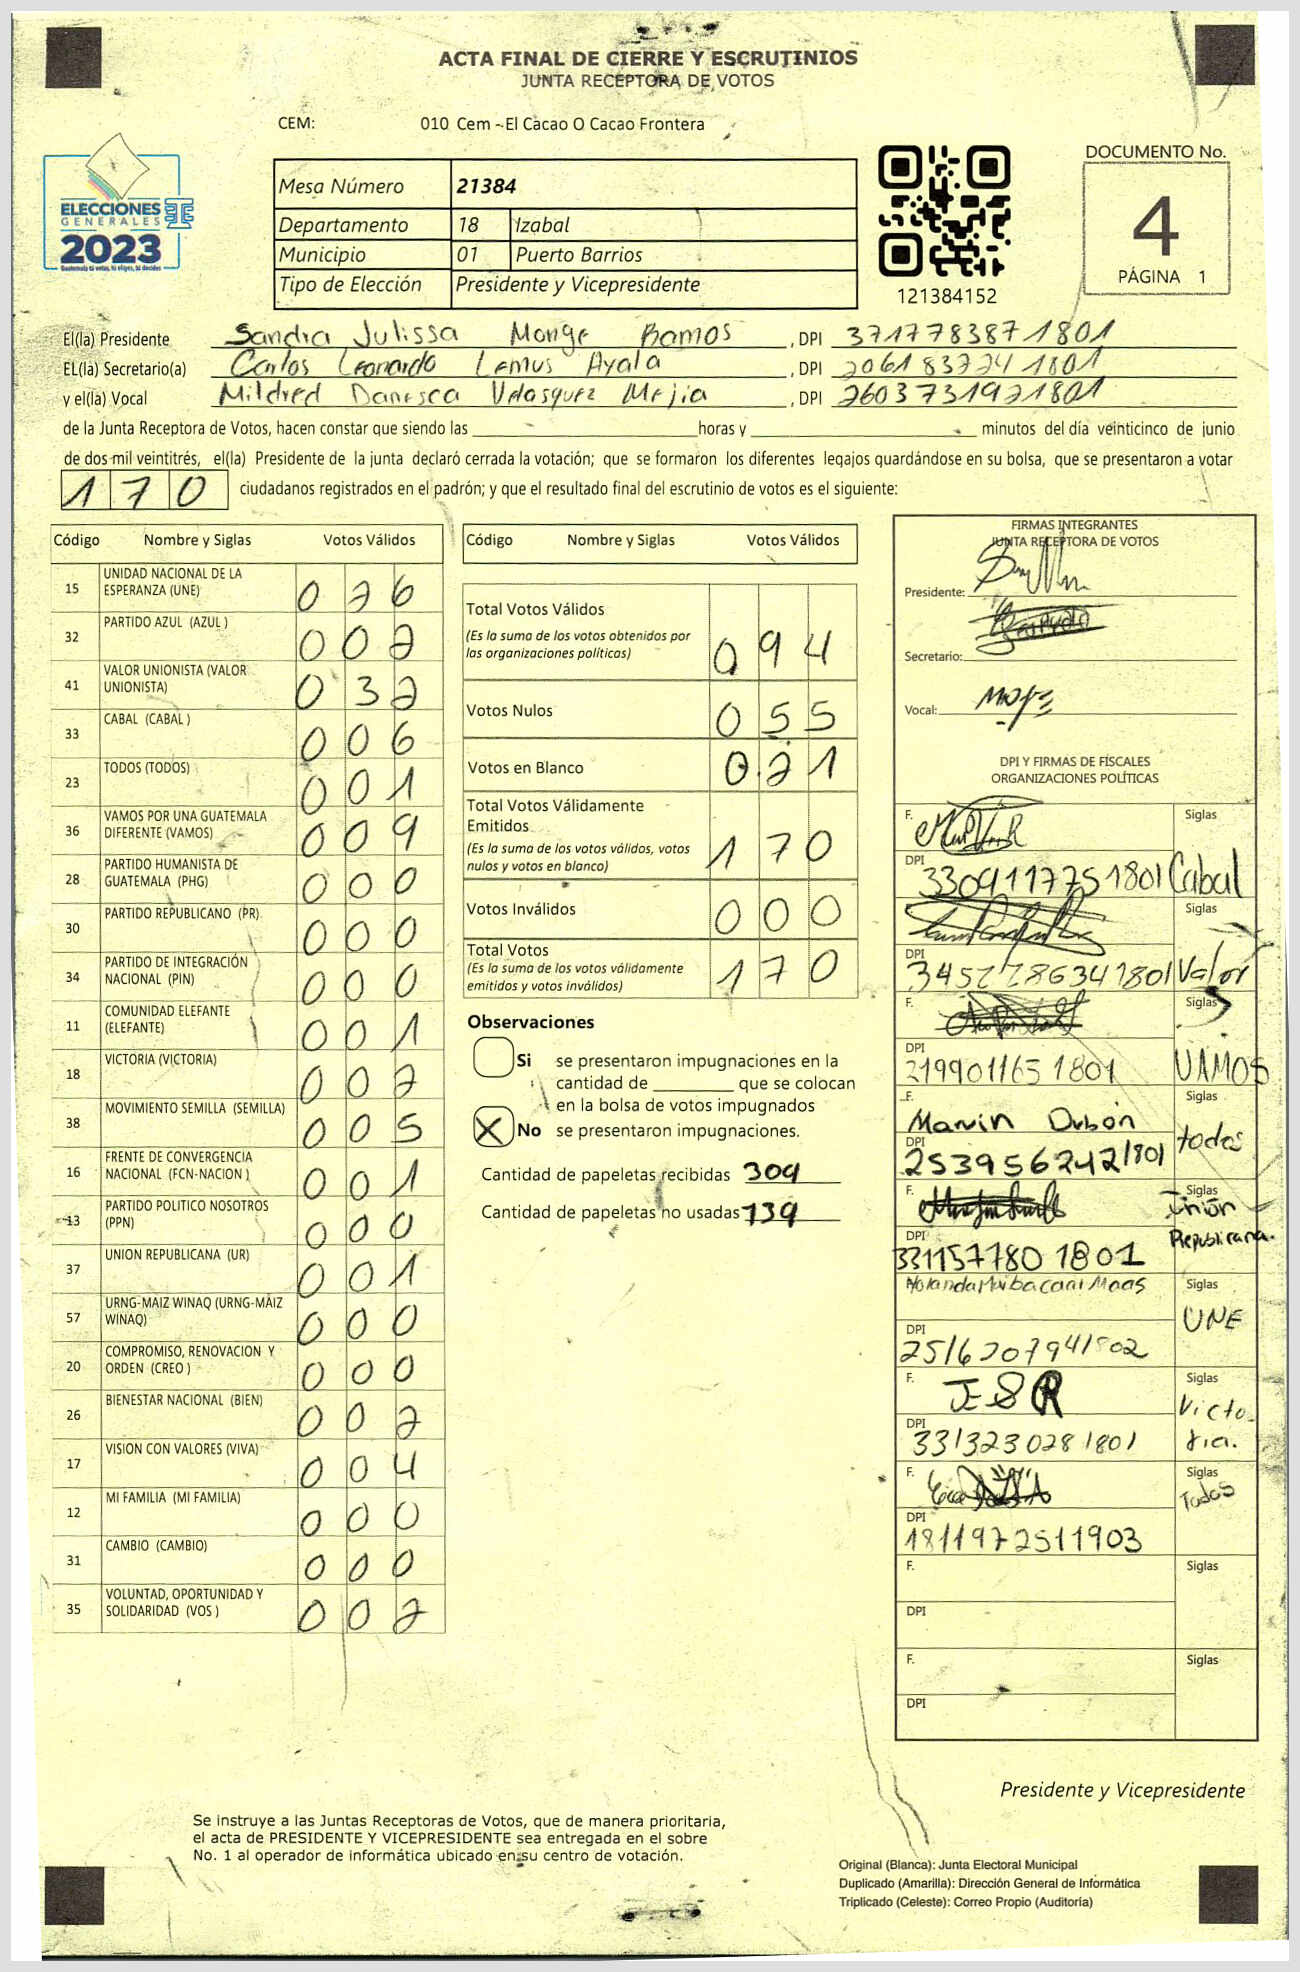 ACTA FINAL DE CIERRE Y ESCRUTINIOS
JUNTA RECEPTORA DE VOTOS
CEM: 010 Cem - El Cacao O Cacao Frontera
ELECCIONES
GENERALES
2023
Guatemala tú votas, tú eliges, tú decides
Mesa Número 21384
Departamento 18 Izabal
Municipio 01 Puerto Barrios
Tipo de Elección Presidente y Vicepresidente
121384152
DOCUMENTO No.
4
PÁGINA 1
El(la) Presidente Sandra Julissa Monge Ramos, DPI 3717783871801
EL(la) Secretario(a) Carlos Leonardo Lemus Ayala, DPI 2061837241801
y el(la) Vocal Mildred Danesca Velasquez Mejia, DPI 2603731921801
de la Junta Receptora de Votos, hacen constar que siendo las ____ horas y ____ minutos del día veinticinco de junio
de dos mil veintitrés, el(la) Presidente de la junta declaró cerrada la votación; que se formaron los diferentes legajos guardándose en su bolsa, que se presentaron a votar
170 ciudadanos registrados en el padrón; y que el resultado final del escrutinio de votos es el siguiente:
Código Nombre y Siglas Votos Válidos
15 UNIDAD NACIONAL DE LA ESPERANZA (UNE) 026
32 PARTIDO AZUL (AZUL ) 002
41 VALOR UNIONISTA (VALOR UNIONISTA) 032
33 CABAL (CABAL ) 006
23 TODOS (TODOS) 001
36 VAMOS POR UNA GUATEMALA DIFERENTE (VAMOS) 009
28 PARTIDO HUMANISTA DE GUATEMALA (PHG) 000
30 PARTIDO REPUBLICANO (PR) 000
34 PARTIDO DE INTEGRACIÓN NACIONAL (PIN) 000
11 COMUNIDAD ELEFANTE (ELEFANTE) 001
18 VICTORIA (VICTORIA) 002
38 MOVIMIENTO SEMILLA (SEMILLA) 005
16 FRENTE DE CONVERGENCIA NACIONAL (FCN-NACION ) 001
13 PARTIDO POLITICO NOSOTROS (PPN) 000
37 UNION REPUBLICANA (UR) 001
57 URNG-MAIZ WINAQ (URNG-MAIZ WINAQ) 000
20 COMPROMISO, RENOVACION Y ORDEN (CREO ) 000
26 BIENESTAR NACIONAL (BIEN) 002
17 VISION CON VALORES (VIVA) 004
12 MI FAMILIA (MI FAMILIA) 000
31 CAMBIO (CAMBIO) 000
35 VOLUNTAD, OPORTUNIDAD Y SOLIDARIDAD (VOS ) 002
Código Nombre y Siglas Votos Válidos
Total Votos Válidos 094
(Es la suma de los votos obtenidos por
las organizaciones políticas)
Votos Nulos 055
Votos en Blanco 021
Total Votos Válidamente
Emitidos 170
(Es la suma de los votos válidos, votos
nulos y votos en blanco)
Votos Inválidos 000
Total Votos 170
(Es la suma de los votos válidamente
emitidos y votos inválidos)
Observaciones
Si se presentaron impugnaciones en la
cantidad de ____ que se colocan
en la bolsa de votos impugnados
X No se presentaron impugnaciones.
Cantidad de papeletas recibidas 309
Cantidad de papeletas no usadas 139
FIRMAS INTEGRANTES
JUNTA RECEPTORA DE VOTOS
Presidente:
Secretario:
Vocal:
DPI Y FIRMAS DE FÍSCALES
ORGANIZACIONES POLÍTICAS
F. Siglas
DPI 3309117751801 Cabal
F. Siglas
DPI 3452286341801 Valor
F. Siglas
DPI 2199011651801 VAMOS
F. Marvin Dubón Siglas
DPI 2539562421801 todos
F. Siglas Unión
DPI 3311577801801 Republicana.
Siglas
DPI 2516207941802 UNE
F. JESR Siglas
DPI 3313230281801 Victoria.
F. Siglas
DPI 1811972511903 Todos
F. Siglas
DPI
F. Siglas
DPI
Presidente y Vicepresidente
Se instruye a las Juntas Receptoras de Votos, que de manera prioritaria,
el acta de PRESIDENTE Y VICEPRESIDENTE sea entregada en el sobre
No. 1 al operador de informática ubicado en su centro de votación.
Original (Blanca): Junta Electoral Municipal
Duplicado (Amarilla): Dirección General de Informática
Triplicado (Celeste): Correo Propio (Auditoría)